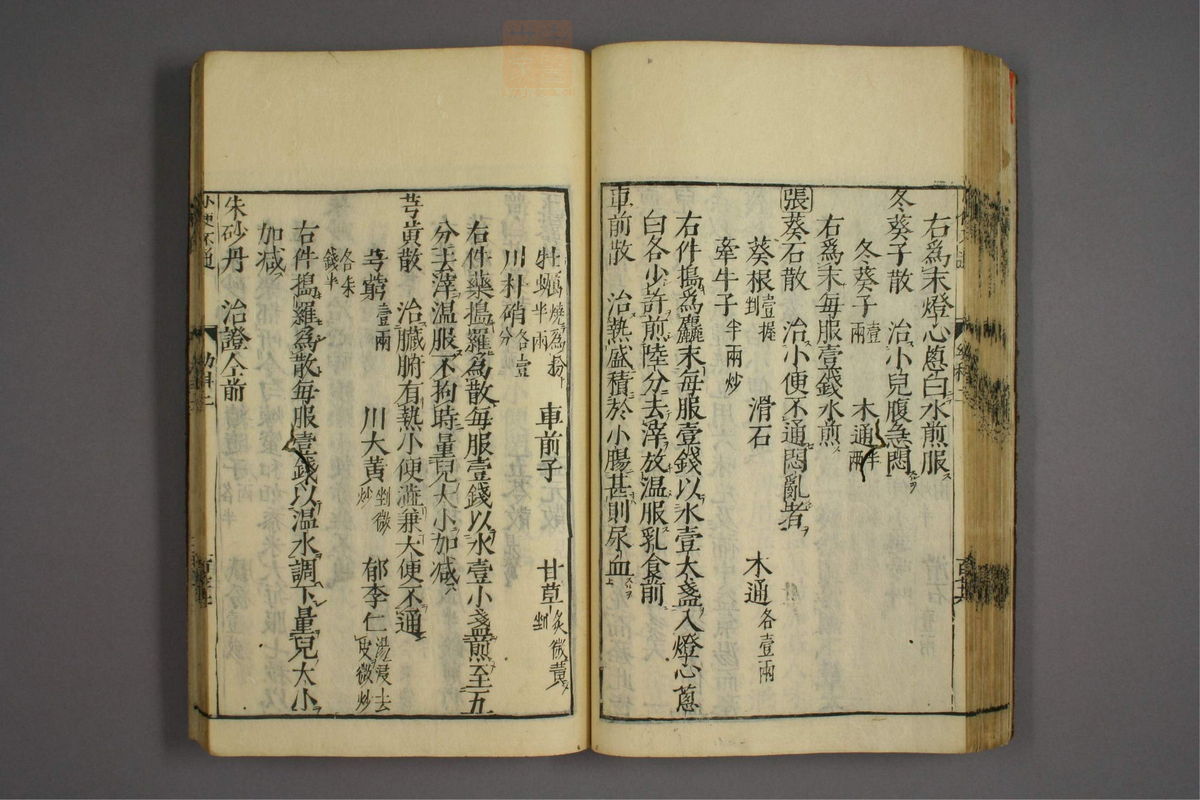 右爲末燈心蔥白水煎服
冬葵子散　治小兒腹急悶
冬葵子壹兩　木通半兩
右爲末每服壹錢水煎
張葵石散　治小便不通悶亂者
葵根壹握剉　滑石　木通各壹兩
牽牛子半兩炒
右件搗爲麤末每服壹錢以水壹大盞入燈心蔥
白各少許煎陸分去滓放温服乳食前
車前散　治熱盛積於小腸甚則尿血
牡蠣燒爲粉半兩　車前子　甘草炙微黃剉
川朴硝各壹分
右件藥搗羅爲散每服壹錢以水壹小盞煎至五
分去滓温服不拘時量兒大小加减
芎黃散　治臓腑有熱小便澁兼大便不通
芎藭壹兩　川大黃剉微炒　郁李仁湯浸去皮微炒
各朱錢半
右件搗羅爲散每服壹錢以温水調下量兒大小
加减
朱砂丹　治證仝前
小便不通
幼科二